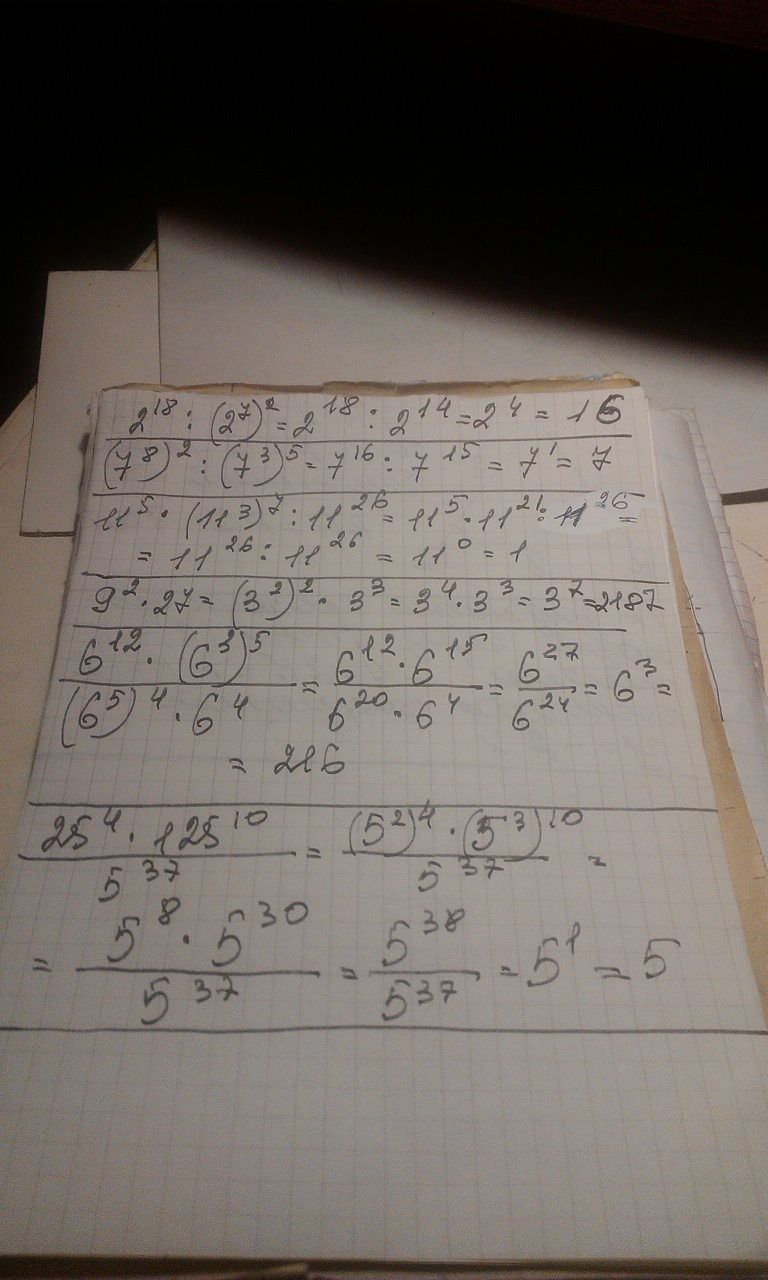 2^18 : (2^7)^2 = 2^18 : 2^14 = 2^4 = 16
(7^8)^2 : (7^3)^5 = 7^16 : 7^15 = 7^1 = 7
11^5 · (11^3)^7 : 11^26 = 11^5 · 11^21 : 11^26 =
= 11^26 : 11^26 = 11^0 = 1
9^2 · 27 = (3^2)^2 · 3^3 = 3^4 · 3^3 = 3^7 = 2187
(6^12 · (6^3)^5) / ((6^5)^4 · 6^4) = (6^12 · 6^15) / (6^20 · 6^4) = 6^27 / 6^24 = 6^3 =
= 216
(25^4 · 125^10) / 5^37 = ((5^2)^4 · (5^3)^10) / 5^37 =
= (5^8 · 5^30) / 5^37 = 5^38 / 5^37 = 5^1 = 5